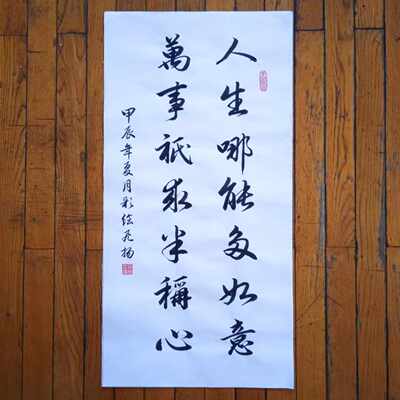 人生哪能多如意
萬事祇求半稱心
甲辰年夏月彩绘飞扬